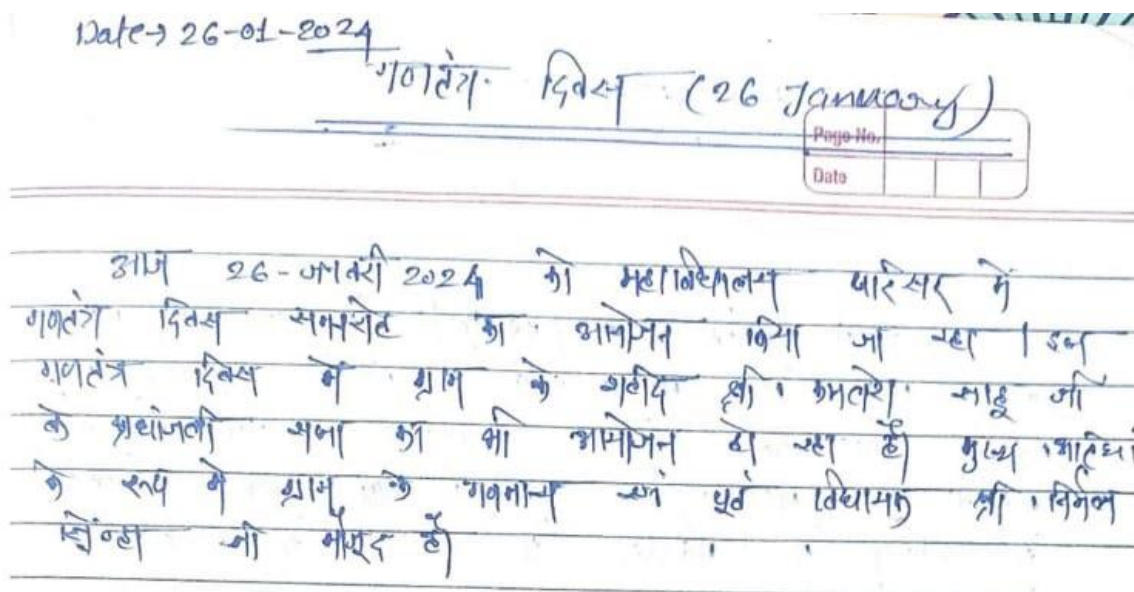 Date→ 26-01-2024
गणतंत्र दिवस (26 January)
Page No.
Date
आज 26-जनवरी 2024 को महाविद्यालय परिसर में
गणतंत्र दिवस समारोह का आयोजन किया जा रहा । इस
गणतंत्र दिवस में ग्राम के शहीद श्री कमलेश साहू जी
के श्रधांजली सभा का भी आयोजन हो रहा है। मुख्य अतिथि
के रूप में ग्राम के गणमान्य एवं पूर्व विधायक श्री निर्मल
सिन्हा जी मौजूद है।